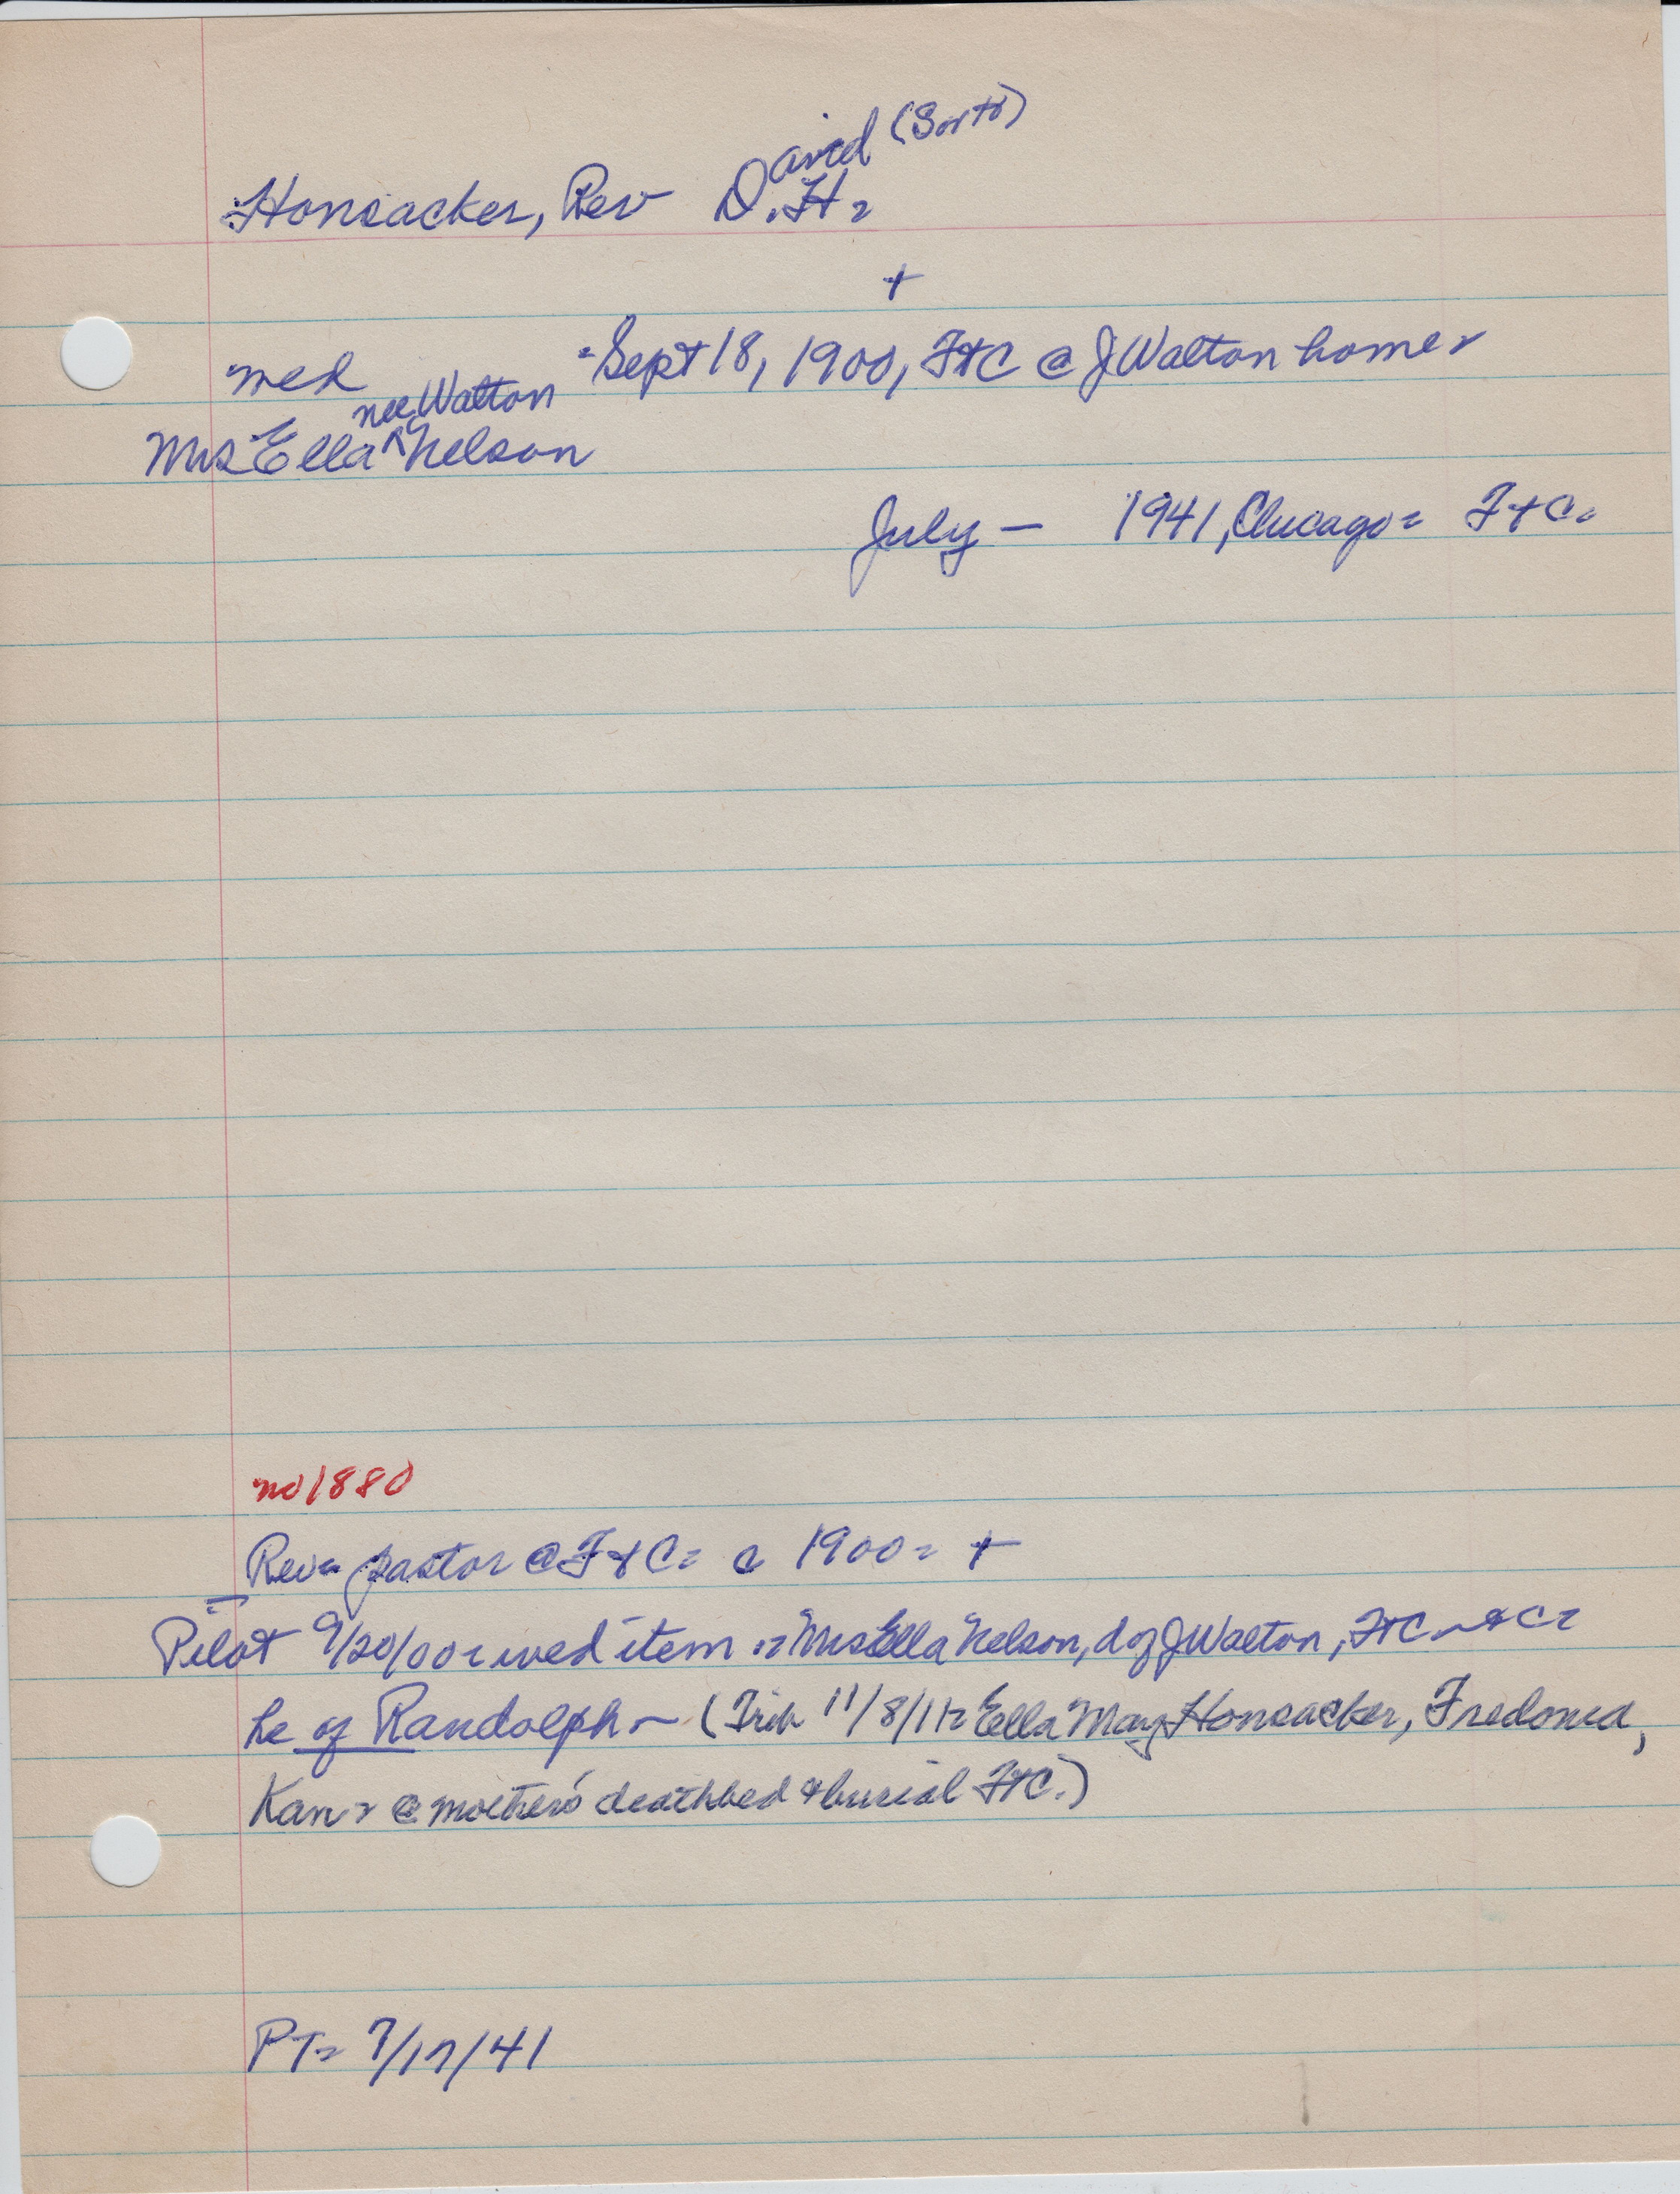 David (Sorts)
Honsacker, Rev D.H.
+
wed - Sept 18, 1900, F+C @ J Walton home -
nee Walton
Mrs Ella ^ Nelson
July — 1941, Chicago = F+C.
no 1880
Rev = pastor @ F+C = c 1900 = +
Pilot 9/20/00 = wed item = "Mrs Ella" Nelson, d of J Walton, F+C
he of Randolph ~ (Trib 11/8/11 = Ella May Honsacker, Fredonia,
Kan = @ mother's deathbed & burial F+C.)
PT = 7/17/41